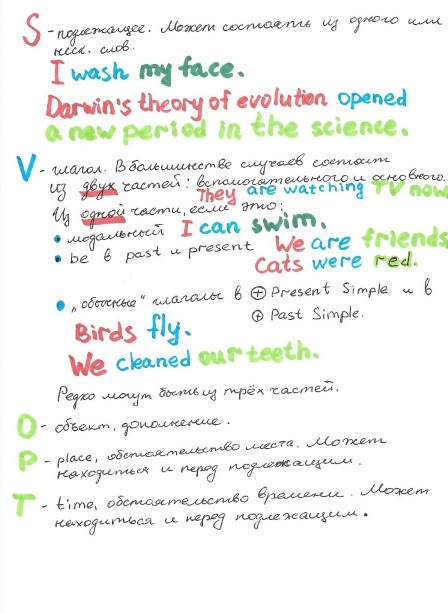 S - подлежащее. Может состоять из одного или
неск. слов.
I wash my face.
Darwin's theory of evolution opened
a new period in the science.
V - глагол. В большинстве случаев состоит
из двух частей: вспомогательного и основного.
They are watching TV now
Из одной части, если это:
• модальный I can swim.
• be в past и present We are friends
Cats were red.
• „обычные" глаголы в ⊕ Present Simple и в
⊕ Past Simple.
Birds fly.
We cleaned our teeth.
Редко могут быть из трёх частей.
O - объект, дополнение.
P - place, обстоятельство места. Может
находиться и перед подлежащим.
T - time, обстоятельство времени. Может
находиться и перед подлежащим.